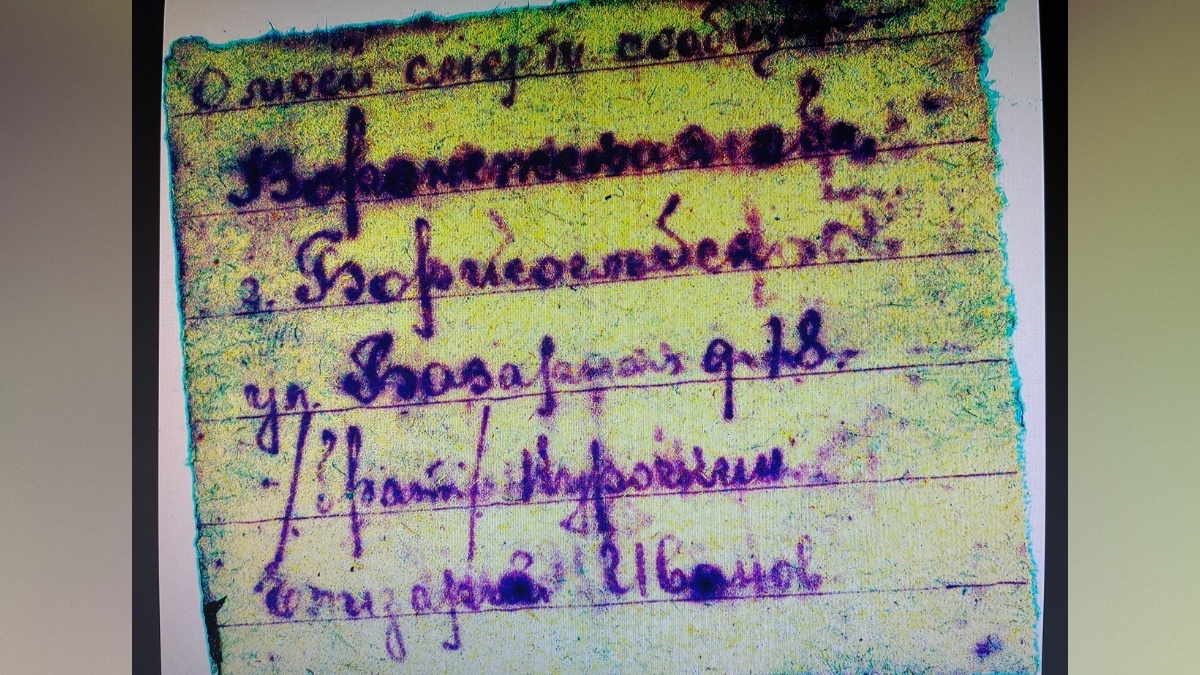 О моей смерти сообщите
Воронежская обл.
г. Борисоглебск
ул. Базарная д. 18.
/Брат/ Курочкин
Елизарий Иванов